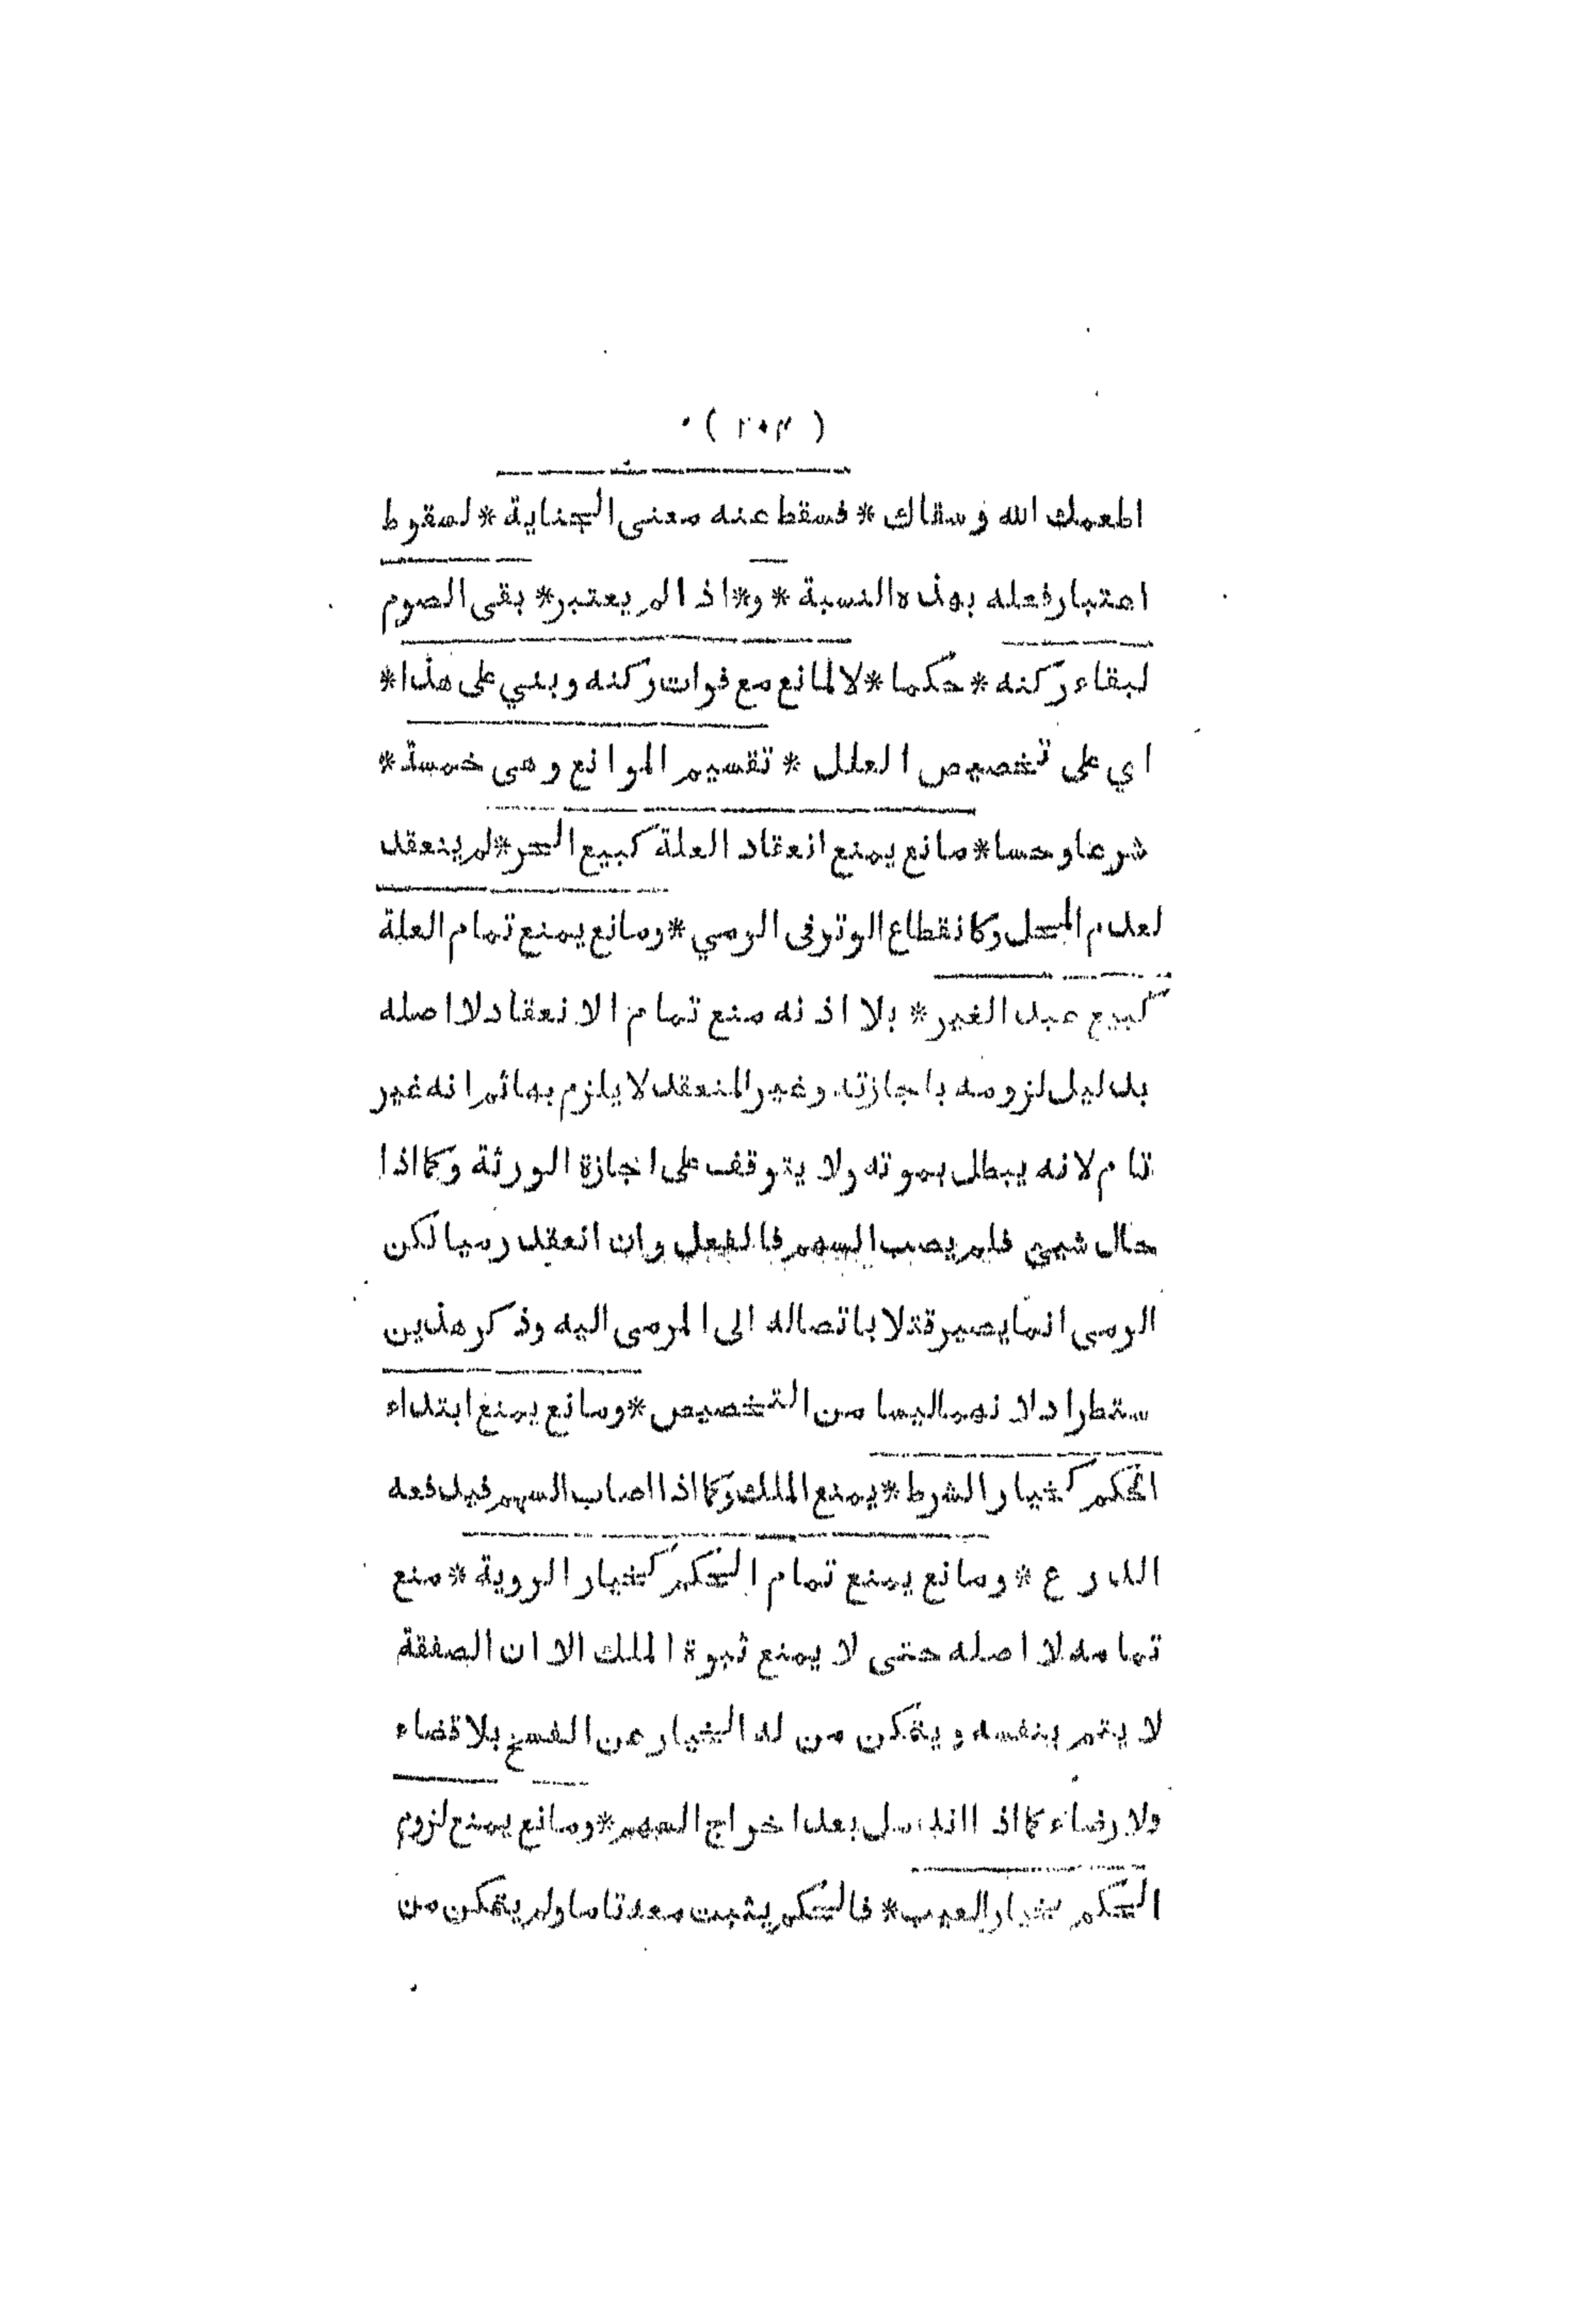 ( ٢٠٣ )
اطعمك الله وسقاك * فسقط عنه معنى الجناية * لسقوط
اعتبار فعله بهذه النسبة * و * اذا لم يعتبر * بقى الصوم
لبقاء ركنه * حكما * لا لمانع مع فوات ركنه وبني على هذا *
اي على تخصيص العلل * تقسيم الموانع وهى خمسة *
شرعا وحسا * مانع يمنع انعقاد العلة كبيع الحر * لم ينعقد
لعدم المحل وكانقطاع الوتر فى الرمي * ومانع يمنع تمام العلة
كبيع عبد الغير * بلا اذنه منع تمام الانعقاد لا اصله
بدليل لزومه باجازته وغير المنعقد لا يلزم بها ثم انه غير
تام لانه يبطل بموته ولا يتوقف على اجازة الورثة وكما اذا
حال شيئ فلم يصب السهم فالفعل وان انعقد رميا لكن
الرمى انما يصير قتلا باتصاله الى المرمى اليه وذكر هذين
ستطراد لا نهما ليسا من التخصيص * ومانع يمنع ابتداء
الحكم كخيار الشرط * يمنع الملك وكما اذا اصاب السهم فيدفعه
الدرع * ومانع يمنع تمام الحكم كخيار الروية * منع
تمامه لا اصله حتى لا يمنع ثبوة الملك الا ان الصفقة
لا يتم بنفسه ويتمكن من له الخيار عن الفسخ بلا قضاء
ولا رضاء كما اذا اندمل بعد اخراج السهم * ومانع يمنع لزوم
الحكم كخيار العيب * فالحكم يثبت معه تاما ولم يتمكن من